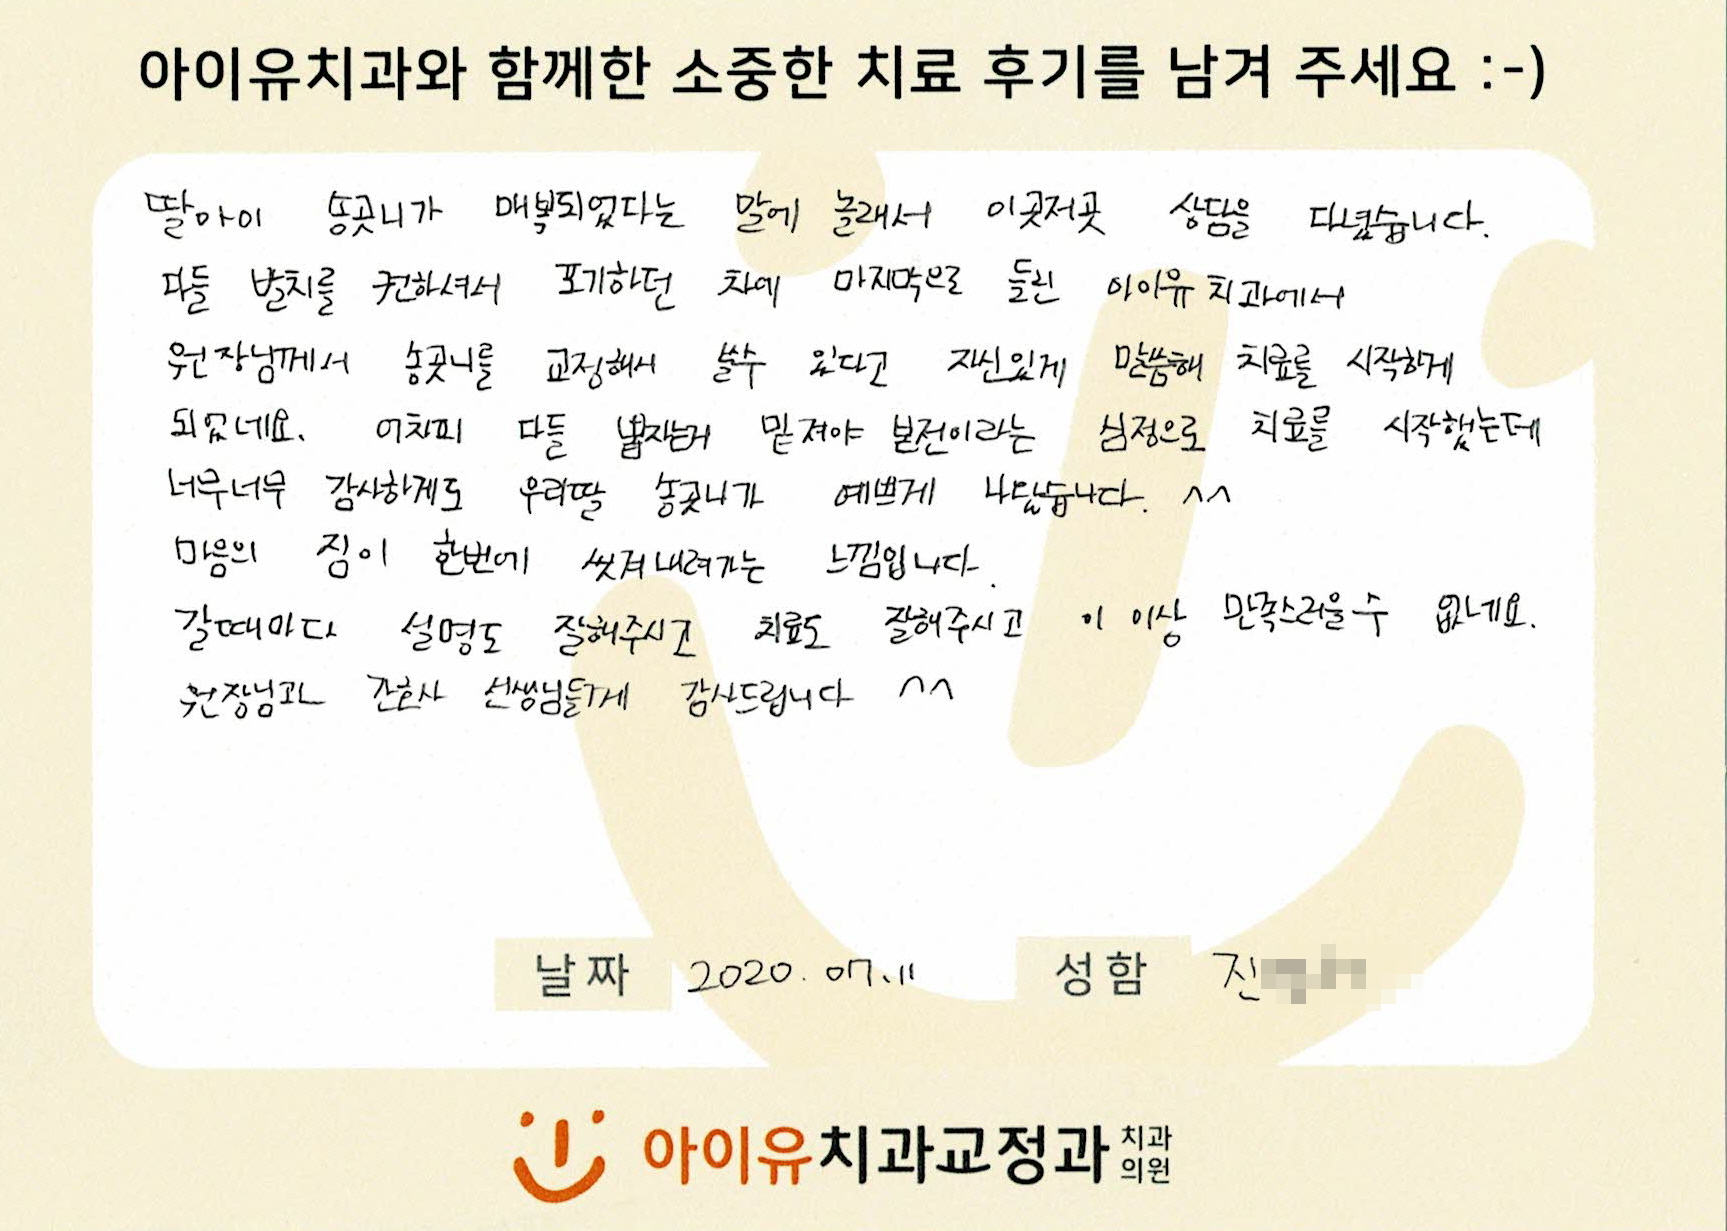 아이유치과와 함께한 소중한 치료 후기를 남겨 주세요 :-)
딸아이 송곳니가 매복되었다는 말에 놀래서 이곳저곳 상담을 다녔습니다.
다들 발치를 권하셔서 포기하던 차에 마지막으로 들린 아이유치과에서
원장님께서 송곳니를 교정해서 쓸수 있다고 자신있게 말씀해 치료를 시작하게
되었네요. 어차피 다들 뽑자는거 밑져야 본전이라는 심정으로 치료를 시작했는데
너무너무 감사하게도 우리딸 송곳니가 예쁘게 나왔습니다. ^^
마음의 짐이 한번에 씻겨내려가는 느낌입니다.
갈때마다 설명도 잘해주시고 치료도 잘해주시고 이 이상 만족스러울수 없네요.
원장님과 간호사 선생님들께 감사드립니다 ^^
날짜 2020.07.11 성함 진
아이유치과교정과 치과
의원